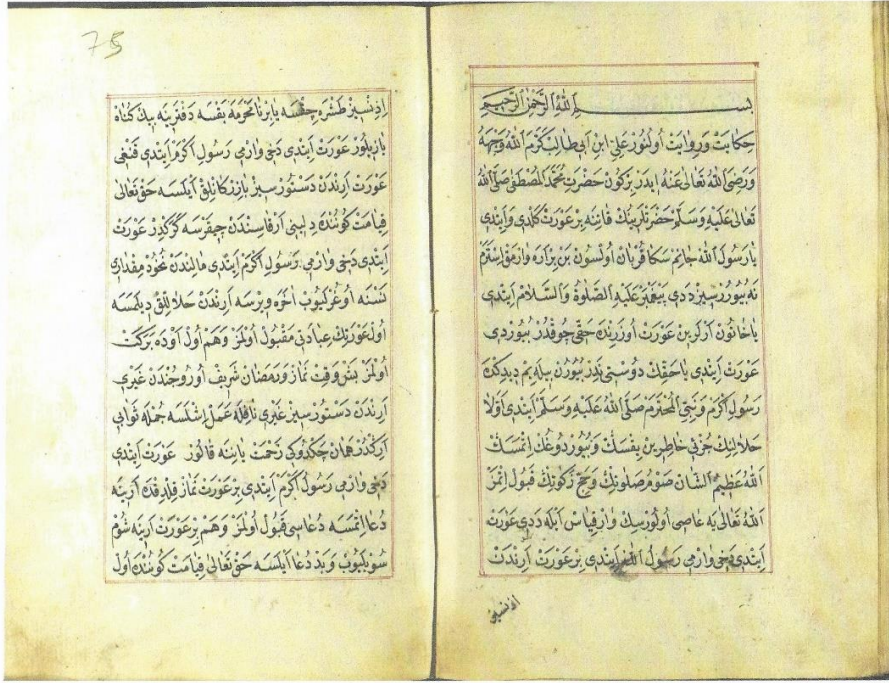 بسم الله الرحمن الرحيم
حكايت وروايت أولنور على ابن ابى طالب كرم الله وجهه
ورضى الله تعالى عنه ايدر بر كون حضرت محمد المصطفى صلى الله
تعالى عليه وسلم حضرتلرينك قاتنه بر عورت كلدى وايتدى
يا رسول الله جانم سكا قربان اولسون بن بر اره وارمق استرم
نه بيورر سيز ددى پيغمبر عليه الصلوة والسلام ايتدى
يا خاتون ارلرين عورت اوزرنده حقى چوقدر بيوردى
عورت ايتدى يا حقك دوستى ندر بيورن بيله يم ديدكده
رسول اكرم ونبى المحترم صلى الله عليه وسلم ايتدى اولا
حلالينك جزئى خاطرين يقسك وبيوردوغك اتمسك
الله عظيم الشان صوم صلوتك وحج زكوتك قبول اتمز
الله تعالى يه عاصى اولورسك وار قياس ايله ددى عورت
ايتدى دخى وارمى رسول الله ايتدى بر عورت ارندن
اذنسيز
75
اذنسيز طشره چقسه يا بر نامحرمه بقسه دفترينه بيك كناه
يازيلور عورت ايتدى دخى وارمى رسول اكرم ايتدى قنغى
عورت ارندن دستور سيز بازركانلق ايلسه حق تعالى
قيامت كوننده ديلينى ارقاسندن چيقرسه كركدر عورت
ايتدى دخى وارمى رسول اكرم ايتدى مالندن نخود مقدارى
نسنه اوغرليوب اخره ويرسه ارندن حلاللق ديلمسه
اول عورتك عبادتى مقبول اولمز وهم اول اوده بركت
اولمز بش وقت نماز ورمضان شريف اوروجندن غيرى
ارندن دستور سيز غيرى نافله عمل اشلسه جمله ثوابى
ارككدر همان چكدوكى زحمت ياننه قالور عورت ايتدى
دخى وارمى رسول اكرم ايتدى بر عورت نماز قلدقده ارينه
دعا اتمسه دعاسى قبول اولمز وهم بر عورت ارينه شوم
سويليوب وبد دعا ايلسه حق تعالى قيامت كوننده اول